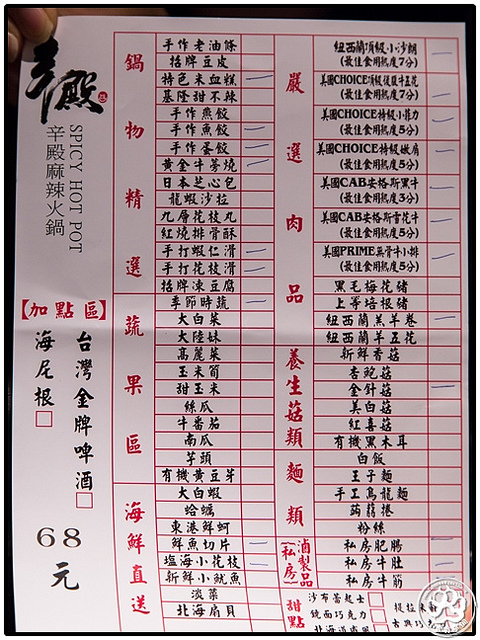 辛殿
SPICY HOT POT
辛殿麻辣火鍋
【加點區】
台灣金牌啤酒□
海尼根□
68元
鍋物精選
手作老油條
招牌豆皮
特色米血糕
基隆甜不辣
手作燕餃
手作魚餃
手作蛋餃
黃金牛蒡燒
日本芝心包
龍蝦沙拉
九層花枝丸
紅燒排骨酥
手打蝦仁滑
手打花枝滑
招牌凍豆腐
蔬果區
季節時蔬
大白菜
大陸妹
高麗菜
玉米筍
甜玉米
絲瓜
牛番茄
南瓜
芋頭
有機黃豆芽
海鮮直送
大白蝦
蛤蠣
東港鮮蚵
鮮魚切片
塩海小花枝
新鮮小魷魚
淡菜
北海扇貝
嚴選肉品
紐西蘭頂級小沙朗
(最佳食用熟度7分)
美國CHOICE頂級後艮牛五花
(最佳食用熟度7分)
美國CHOICE特級小菲力
(最佳食用熟度5分)
美國CHOICE特級嫩肩
(最佳食用熟度5分)
美國CAB安格斯黑牛
(最佳食用熟度3分)
美國CAB安格斯雪花牛
(最佳食用熟度5分)
美國PRIME無骨牛小排
(最佳食用熟度5分)
黑毛梅花豬
上等培根豬
紐西蘭羔羊卷
紐西蘭羊五花
養生菇類
新鮮香菇
杏鮑菇
金針菇
美白菇
紅喜菇
有機黑木耳
麵類
白飯
王子麵
手工烏龍麵
蒟蒻捲
粉絲
滷製品(私房)
私房肥腸
私房牛肚
私房牛筋
甜點
沙布蕾起士□
鏡面巧克力□
古典巧克